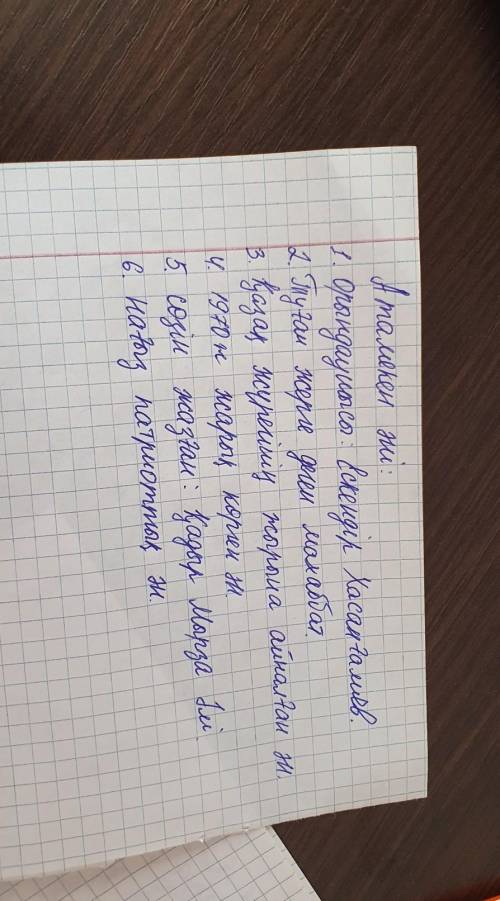 Атамекен әні:
1. Орындаушысы: Ескендір Хасанғалиев.
2. Туған жерге деген махаббат.
3. Қазақ жүрегінің жырына айналған ән.
4. 1970ж жарық көрген ән
5. сөзін жазған: Қадыр Мырза Әлі.
6. Нағыз патриоттық ән.